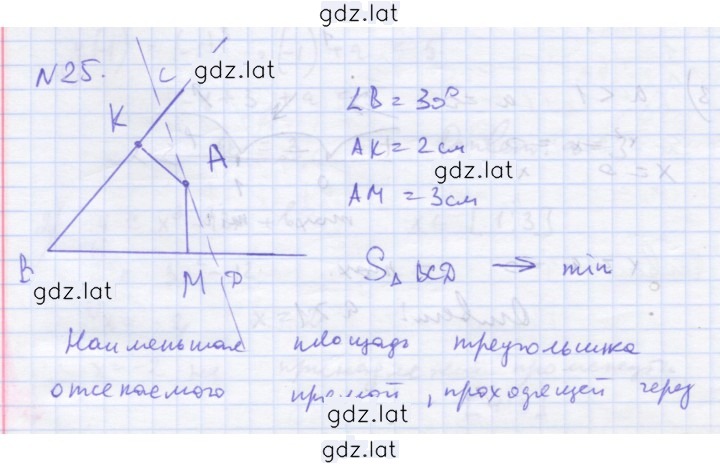 gdz.lat
N25.
C
gdz.lat
K
A
∠B = 30°
AK = 2 см
gdz.lat
AM = 3 см
B
M D
S△BCD → min
gdz.lat
Наименьшая площадь треугольника
отсекаемого прямой, проходящей через
gdz.lat
gdz.lat